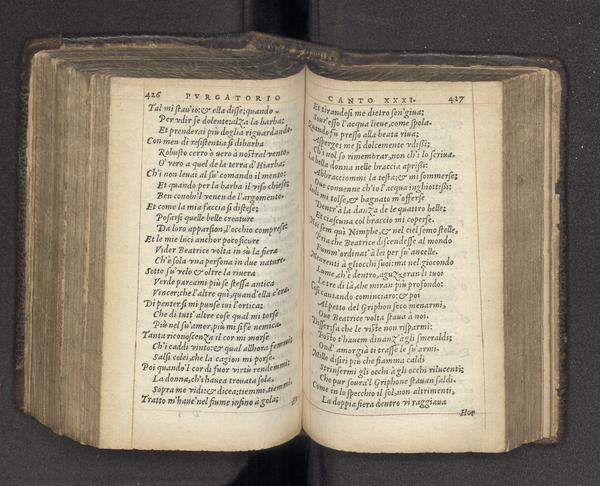 426
PVRGATORIO
Tal mi stau'io: & ella disse; quando
Per vdir se dolente; alza la barba;
Et prenderai più doglia riguardando.
Con men di resistentia si dibarba
Robusto cerro ò uero à nostral vento,
O' vero a quel de la terra d'Hiarba;
Ch'i non leuai al su' comando il mento:
Et quando per la barba il viso chiese;
Ben conobbi'l venen de l'argomento.
Et come la mia faccia si distese;
Posarsi quelle belle creature
Da loro apparsion, l'occhio comprese;
Et le mie luci anchor poco sicure
Vider Beatrice volta in sù la fiera
Ch'è sola vna persona in due nature.
Sotto su' velo & oltre la riuera
Verde pareami più se stessa antica
Vincer; che l'altre quì; quand'ella c'era.
Di penter sì mi punse iui l'ortica;
Che di tutt'altre cose qual mi torse
Più nel su' amor, più mi si fè nemica.
Tanta riconoscenza il cor mi morse
Ch'i caddi vinto: & qual allhora femmi;
Salsi colei, che la cagion mi porse.
Poi quando'l cor di fuor virtù rendemmi;
La donna, ch'i hauea trouata sola,
Sopra me vidi: & dicea; tiemmi, tiemmi.
Tratto m'haue' nel fiume infino à gola;
CANTO XXXI.
427
Et tirandosi me dietro sen' giua;
Sour'esso l'acqua lieue, come spola.
Quando fù presso alla beata riua;
Asperges me sì dolcemente vdissi;
Ch'i nol so rimembrar, non ch'i lo scriua.
La bella donna nelle braccia aprissi:
Abbracciommi la testa; & mi sommerse;
Oue conuenne ch'io l'acqua inghiottissi:
Indi mi tolse, & bagnato m'offerse
Dentr'à la danza de le quattro belle;
Et ciascuna col braccio mi coperse.
Noi sem quì Nimphe, & nel ciel semo stelle,
Pria che Beatrice discendesse al mondo
Fumm'ordinat'à lei per su' ancelle.
Merrenti à gliocchi suoi: ma nel giocondo
Lume, ch'è dentro, aguzzeran li tuoi
Le tre di là, che miran più profondo:
Così cantando cominciaro: & poi
Al petto del Griphon seco menarmi,
Oue Beatrice volta staua à noi.
Disser; fa che le viste non risparmi:
Posto t'hauem dinanz'à gli smeraldi;
Ond' amor già ti trasse le su' armi.
Mille disiri più che fiamma caldi
Strinsermi gli occhi à gli occhi rilucenti;
Che pur soura'l Griphone stauan saldi.
Come in lo specchio il sol; non altrimenti,
La doppia fiera dentro vi raggiaua
Hor